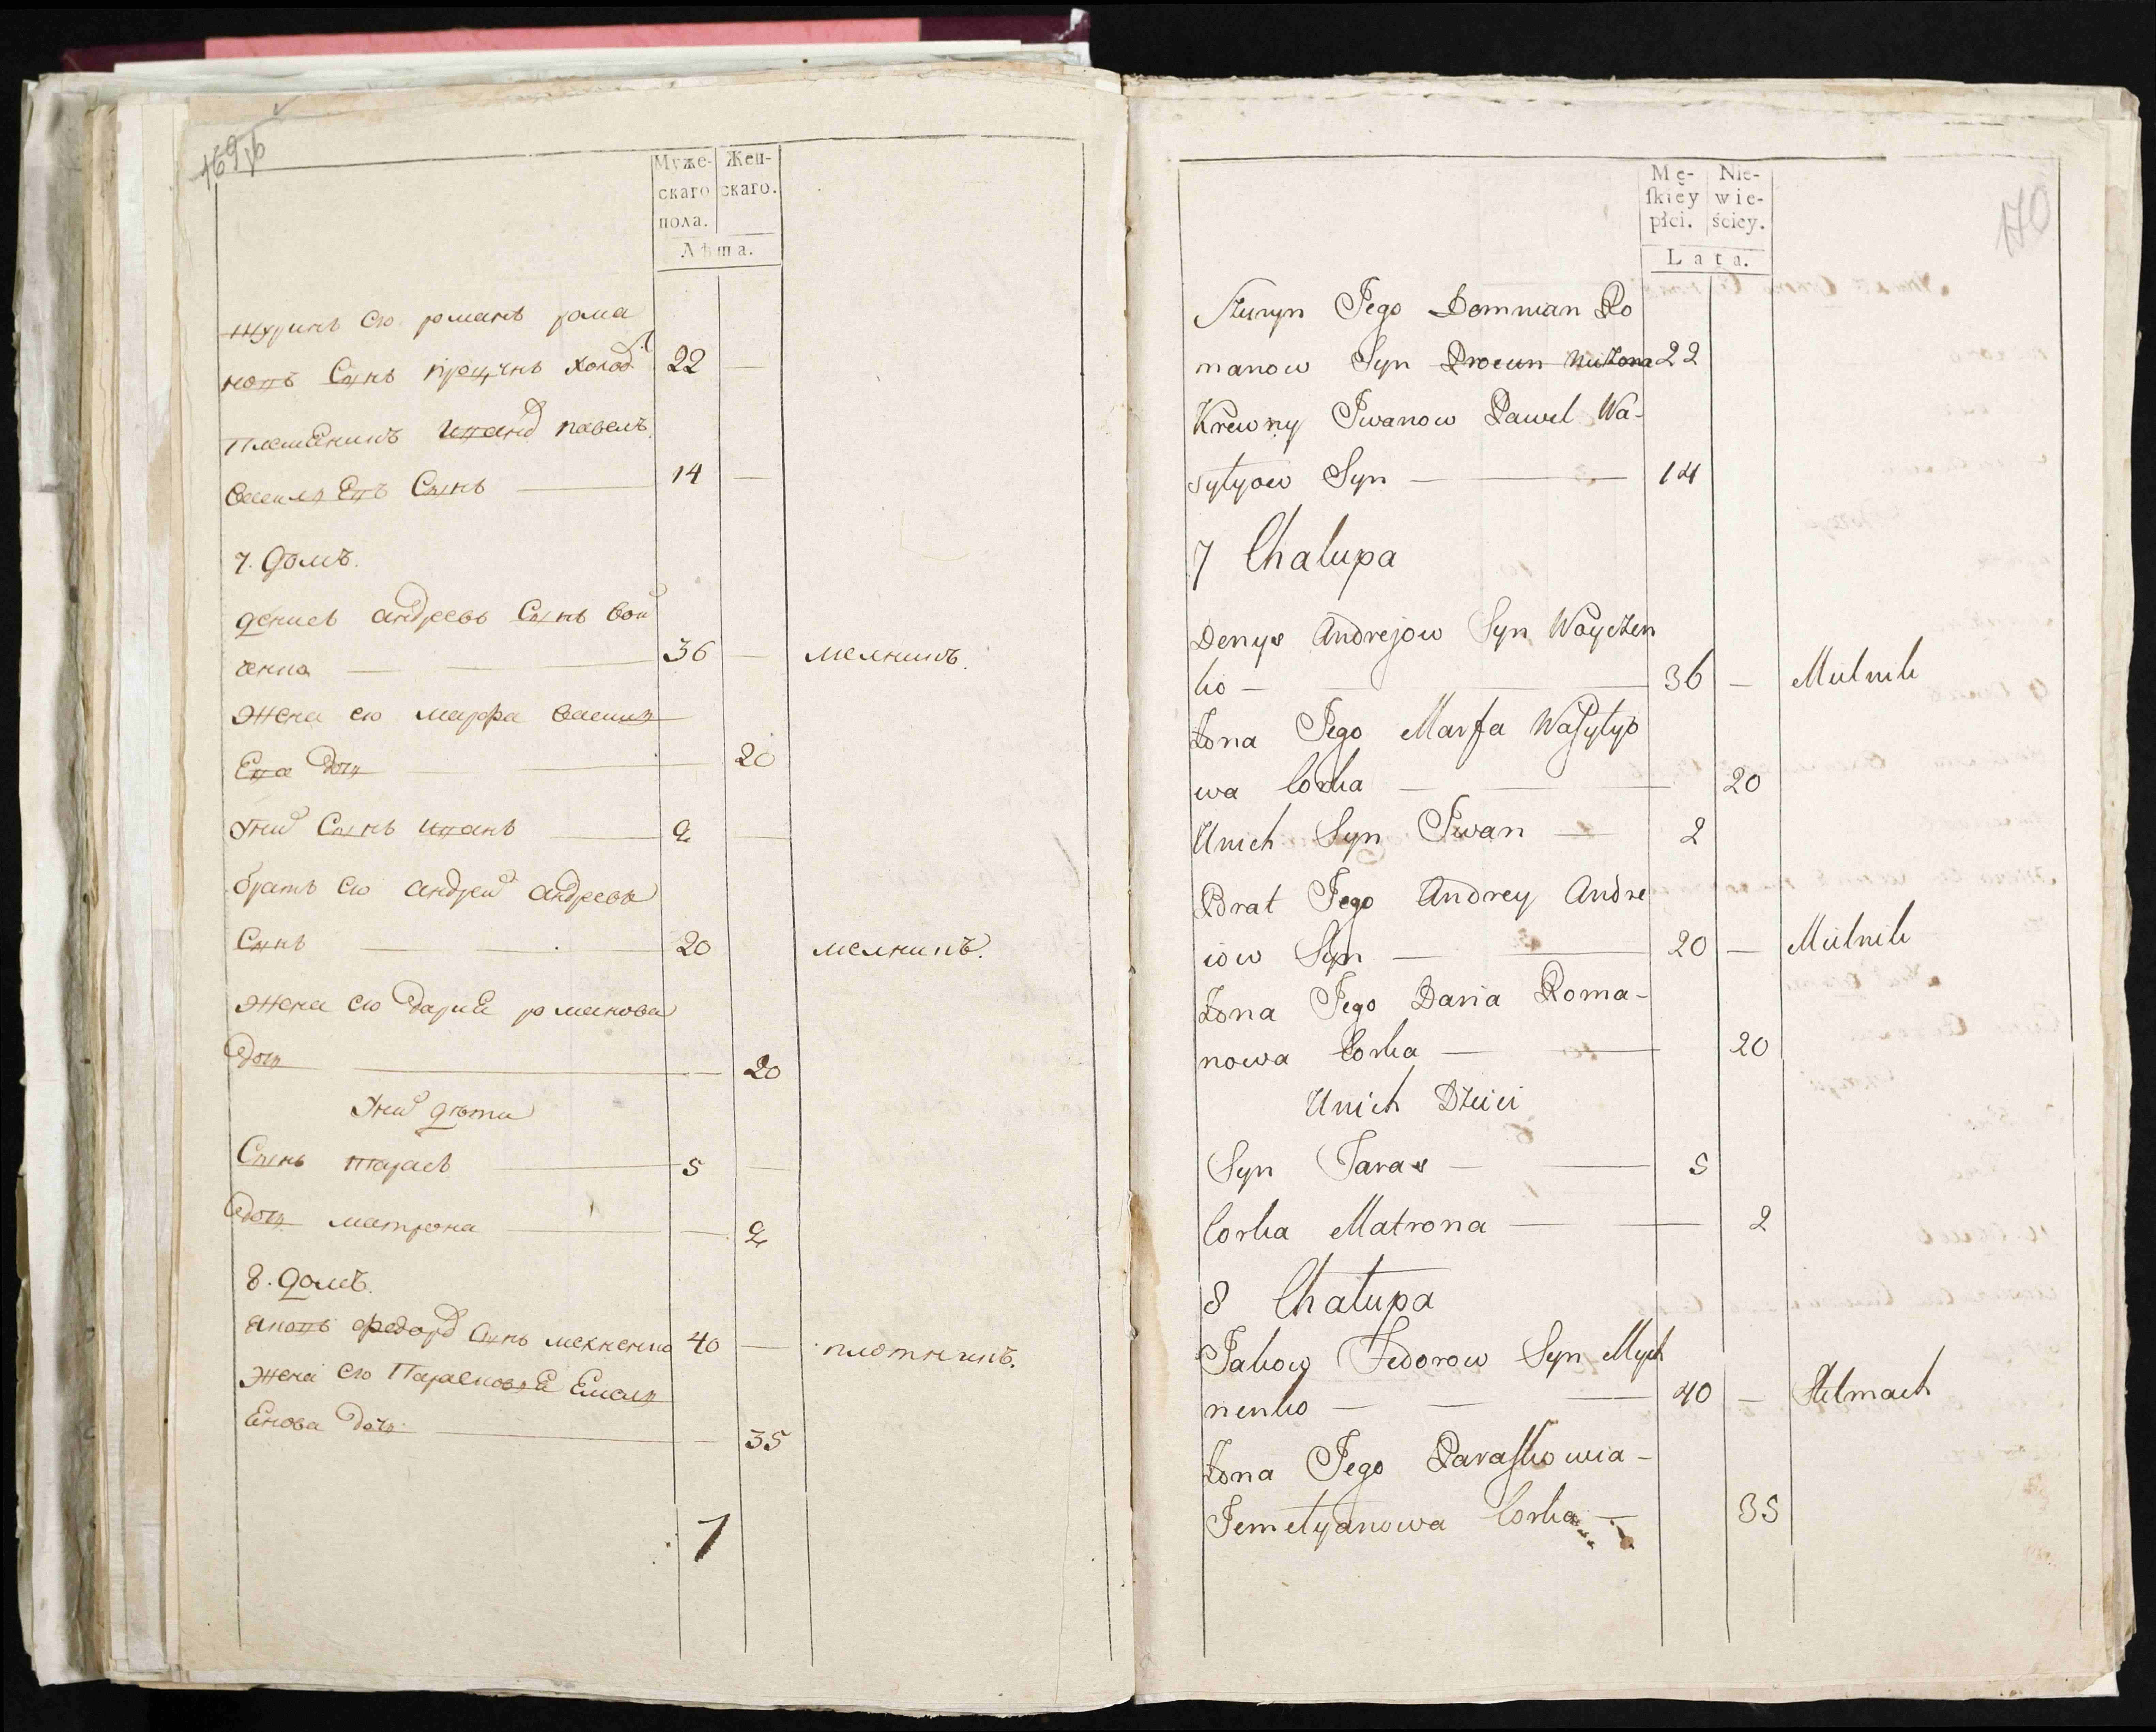 169
Муже-
скаго
пола.
Жен-
скаго.
Лѣта.
шуринъ ею романъ рома
новъ Сынъ холод 22 —
племЕникъ иванд павелъ
василяЕвъ Сынъ — 14 —
7. домъ.
денисъ андреевъ Сынъ вой
ченко — — 36 — мелникъ.
жена ею марфа василя
Ева дочь — — 20
Унихъ Сынъ иванъ — 2 —
братъ ею андрей андреевъ
Сынъ — — 20 мелникъ.
жена ею дариЕ романова
дочь — — 20
Унихъ дѣти
Сынъ тарасъ — 5 —
дочь матрона — — 2
8. домъ.
яковъ федоръ Сынъ мехненко 40 — плотникъ.
жена ею ПарасковяЕ Емеля
Енова дочь — — 35
7
170
Mę-
ſkiey
płci.
Nie-
wie-
ściey.
Lata.
Szuryn Jego Demnian Ro
manow Syn Procun Nikona 22
Krewny Iwanow Pawel Wa-
sylyow Syn — — 14
7 Chalupa
Denys Andrejow Syn Woyczen
ko — — 36 — Mielnik
Zona Jego Marfa Waſylyo
wa Corka — — 20
Unich Syn Iwan — 2
Brat Jego Andrey Andre
iow Syn — — 20 — Mielnik
Zona Jego Daria Roma-
nowa Corka — — 20
Unich Dzieci
Syn Taras — — 5
Corka Matrona — — 2
8 Chalupa
Jakow Fedorow Syn Mych
nenko — — — 40 — Stelmach
Zona Jego Paraſkowia -
Jemelyanowa Corka — 35